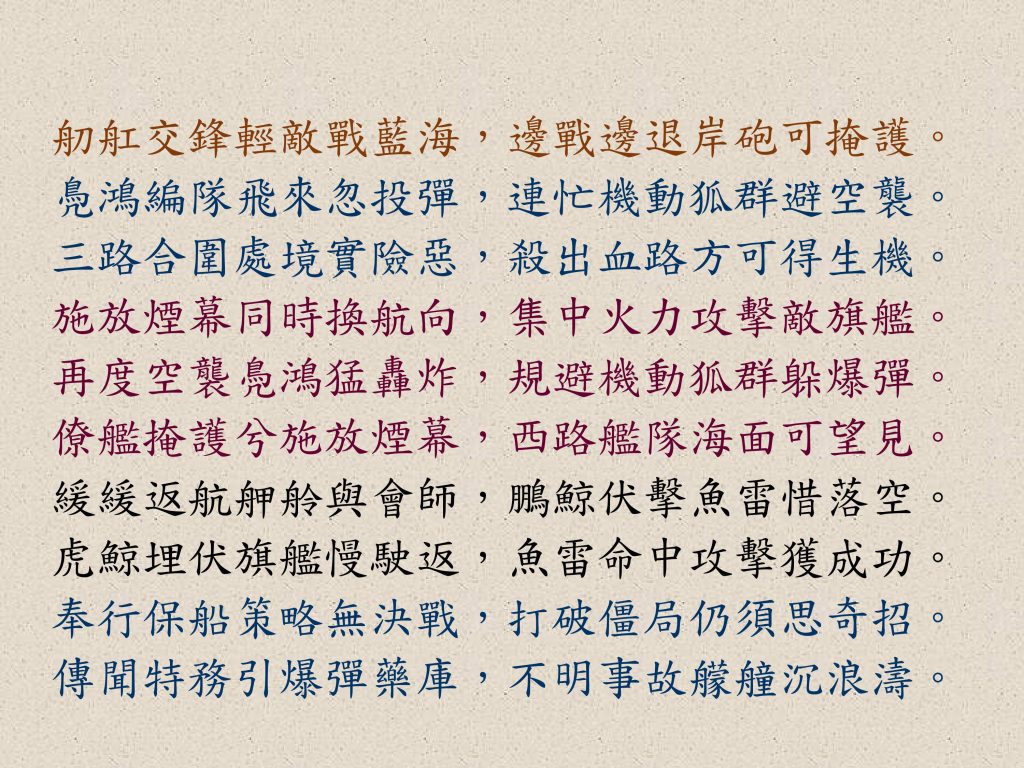 舠舡交鋒輕敵戰藍海，邊戰邊退岸砲可掩護。
鳧鴻編隊飛來忽投彈，連忙機動狐群避空襲。
三路合圍處境實險惡，殺出血路方可得生機。
施放煙幕同時換航向，集中火力攻擊敵旗艦。
再度空襲鳧鴻猛轟炸，規避機動狐群躲爆彈。
僚艦掩護兮施放煙幕，西路艦隊海面可望見。
緩緩返航舺舲與會師，鵬鯨伏擊魚雷惜落空。
虎鯨埋伏旗艦慢駛返，魚雷命中攻擊獲成功。
奉行保船策略無決戰，打破僵局仍須思奇招。
傳聞特務引爆彈藥庫，不明事故艨艟沉浪濤。